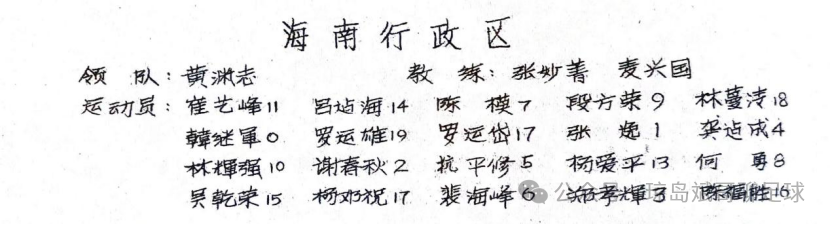 海南行政区
领 队：黄渊志 教 练：张妙菁 麦兴国
运动员：崔艺峰11 吕坫海14 陈 模7 段方荣9 林蔓涛18
韓继軍0 罗运雄19 罗运岱17 张 逸1 龚追成4
林輝强10 谢春秋2 抗平修5 杨爱平13 何 勇8
吴乾荣15 杨邓祝17 裴海峰6 郑孝輝3 陈福胜16
公众号